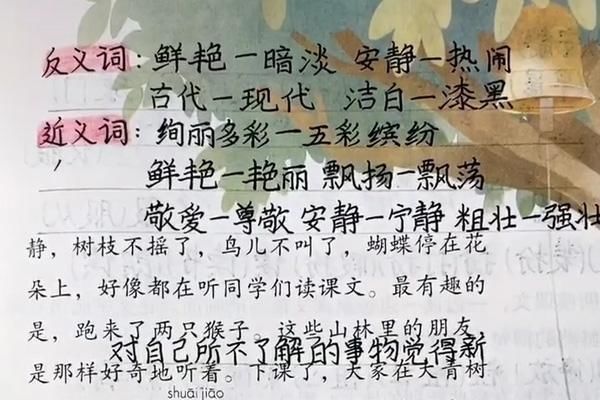 反义词：鲜艳—暗淡 安静—热闹
古代—现代 洁白—漆黑
近义词：绚丽多彩—五彩缤纷
鲜艳—艳丽 飘扬—飘荡
敬爱—尊敬 安静—宁静 粗壮—强壮
静，树枝不摇了，鸟儿不叫了，蝴蝶停在花
朵上，好像都在听同学们读课文。最有趣的
是，跑来了两只猴子。这些山林里的朋友，
对自己所不了解的事物觉得新
是那样好奇地听着。下课了，大家在大青树
shuāi jiāo